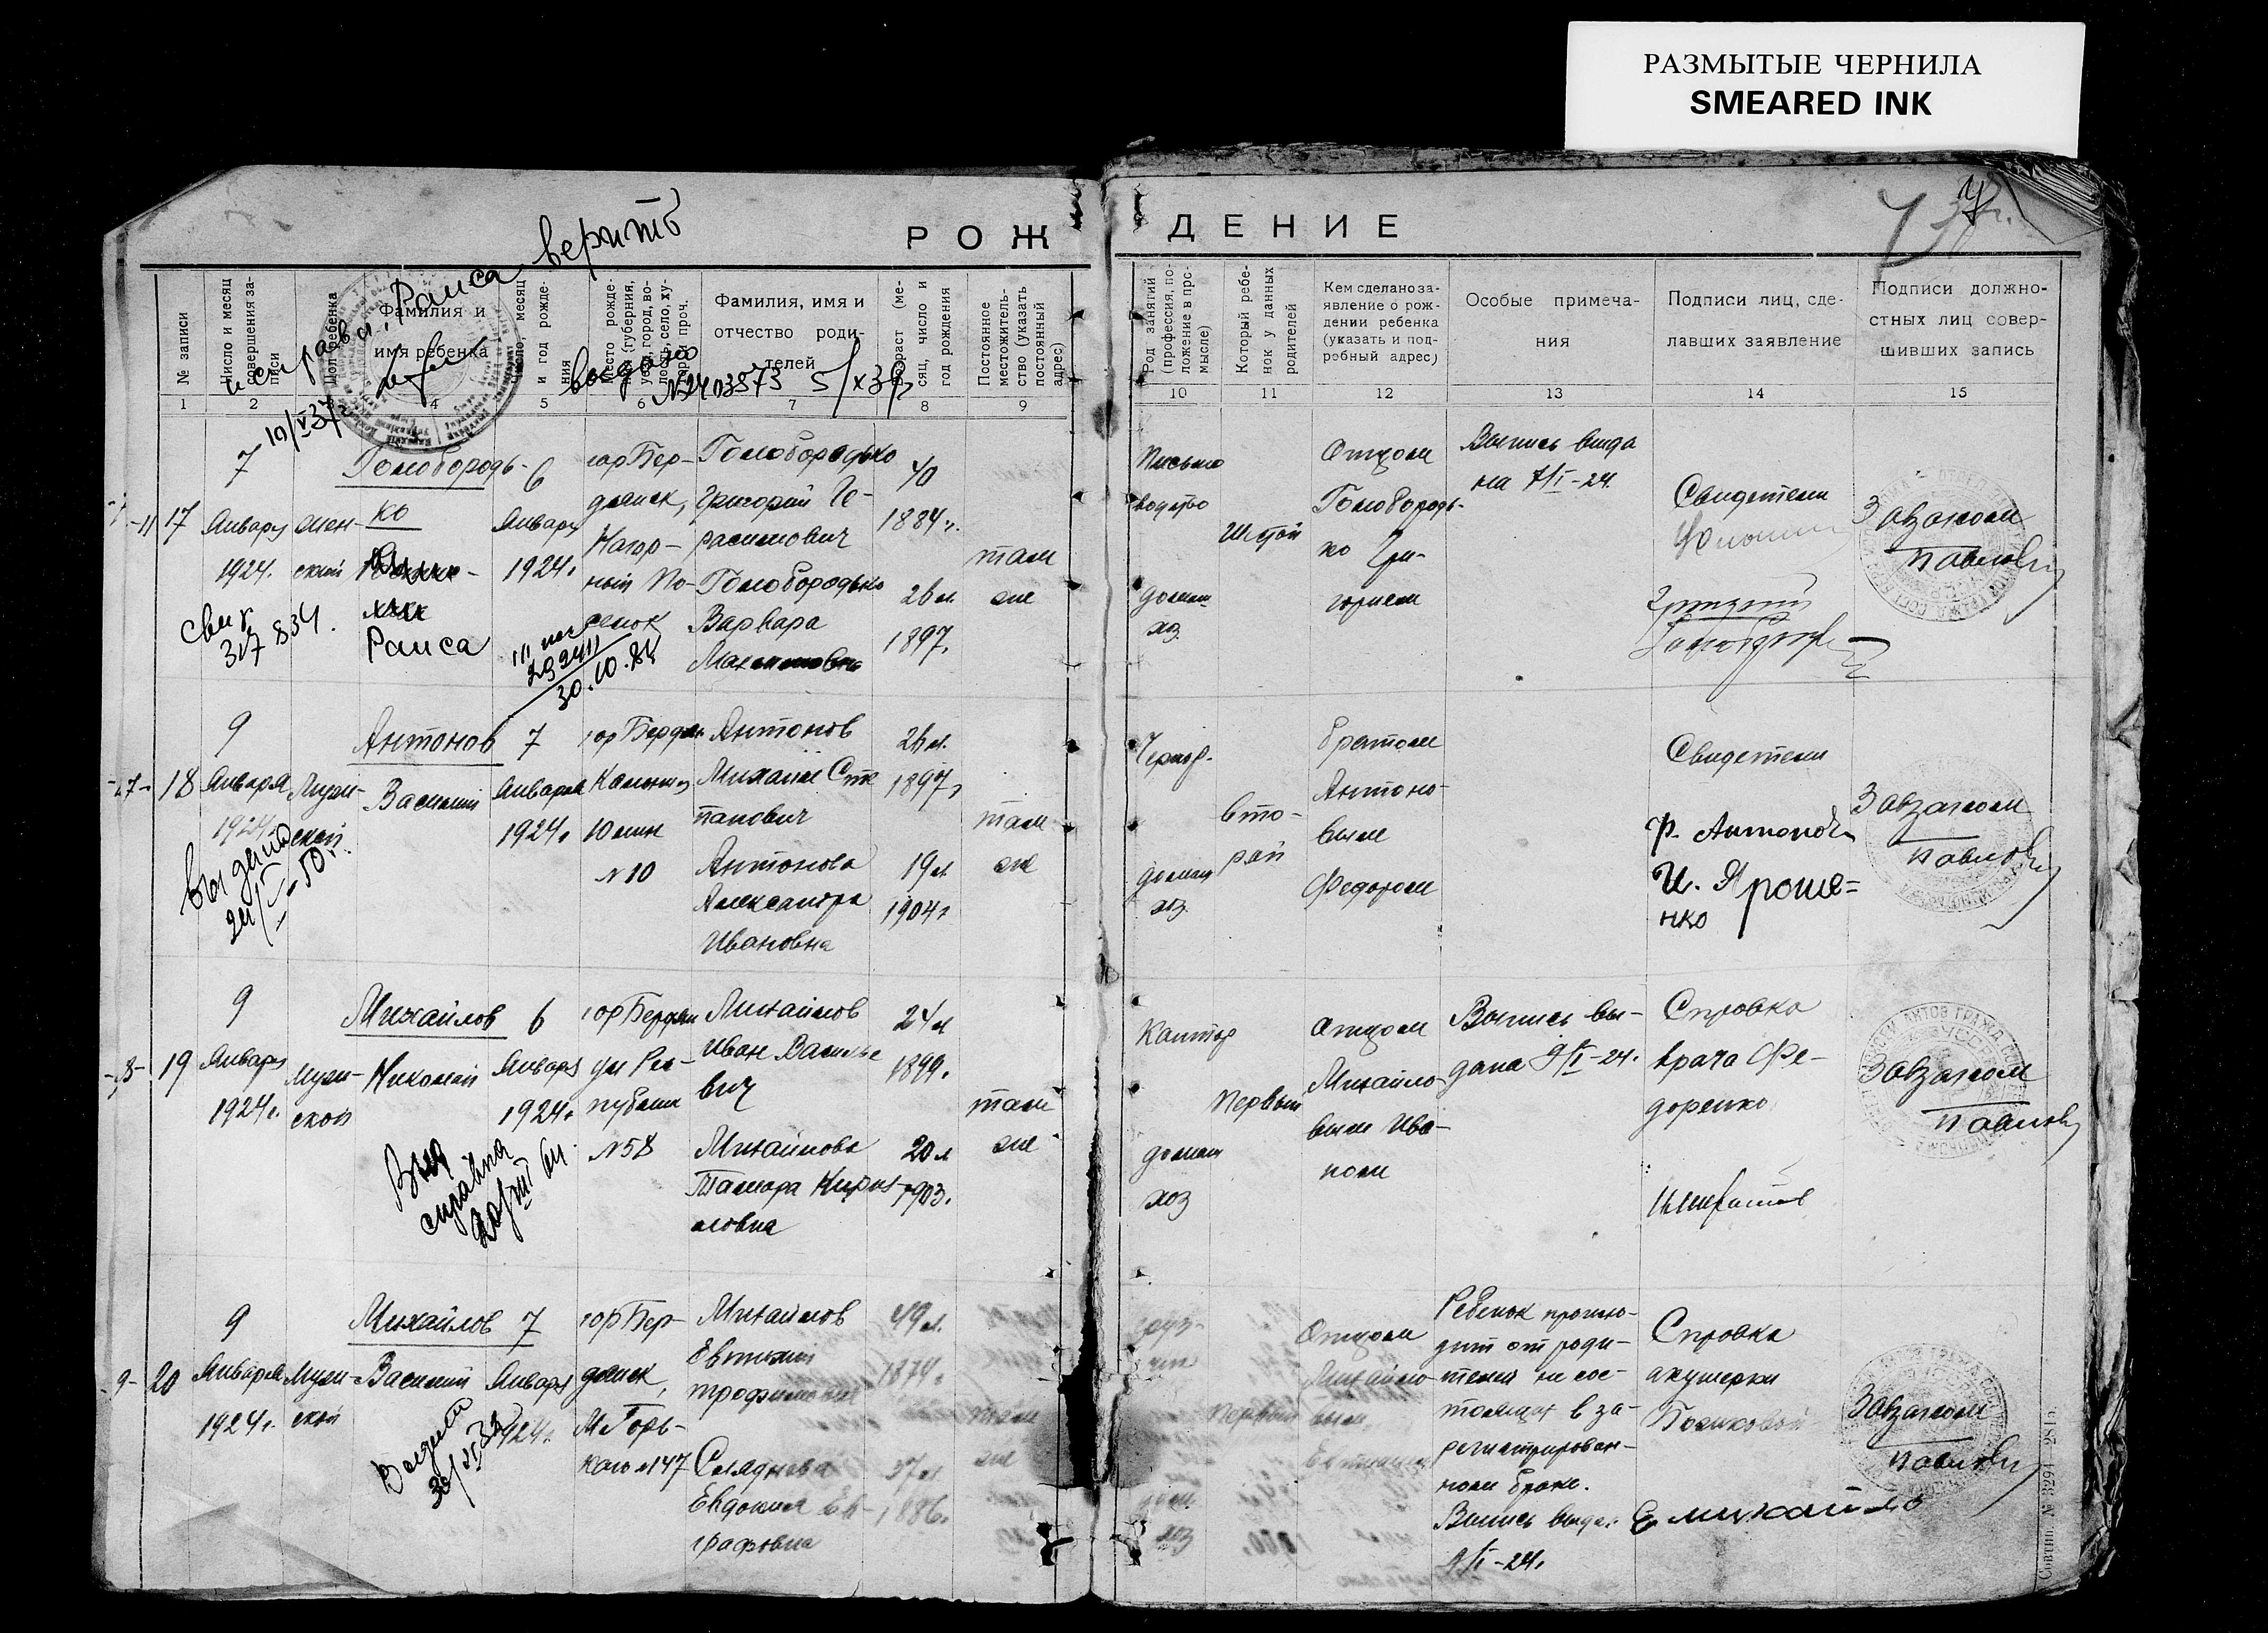 РАЗМЫТЫЕ ЧЕРНИЛА
SMEARED INK
РОЖДЕНИЕ
исправл. Раиса верить
10/V 37
выдано
№2403873 5/X 39
№ записи
Число и месяц совершения записи
Пол ребенка
Фамилия и
имя ребенка
Число, месяц
и год рождения
Место рожде-
Фамилия, имя и
отчество роди-
телей
Возраст (ме-
сяц, число и
год рождения
Постоянное
местожитель-
ство (указать
постоянный
адрес)
Род занятий
(профессия, по-
ложение в про-
мысле)
Который ребе-
нок у данных
родителей
Кем сделано за-
явление о рож-
дении ребенка
(указать и под-
робный адрес)
Особые примеча-
ния
Подписи лиц, сде-
лавших заявление
Подписи должно-
стных лиц совер-
шивших запись
1 2 3 4 5 6 7 8 9 10 11 12 13 14 15
-11 17
7
Январ
1924.
жен-
ский
Голобородь-
ко
Раиса
6
Январ
1924.
гор Бер-
дянск,
Нагор-
ный По-
селок
Голобородько
Григорий Ге-
расимович
Голобородько
Варвара
40
1884 г.
26 л.
1897.
там
же
Письмо
водство
домаш
хоз.
Шестой
Отцом
Голобородь-
ко Гри-
горием
Выпись выда
на 7/I-24.
Свидетели
Завзагсом
317 834.
30.10.84
-27- 18
9
Января
1924г
Муж-
ской
Антонов
Василий
7
Января
1924г
гор Бердян
№10
Антонов
Михаил Сте
панович
Антонова
Александра
Ивановна
26 л.
1897г
19 л
1904г
там
же
Чернор.
домаш
хоз.
Вто-
рой
братом
Антоно-
вым
Федором
Свидетели
Ф. Антонов
И. Яроше-
нко
Завзагсом
19
9
Январ
1924г.
Муж-
ской
Михайлов
Николай
6
Январ
1924г
гор Бердян
ул Рес-
публики
№58
Михайлов
Иван Василье
вич
Михайлова
Тамара Кирил
ловна
24 л
1899.
20 л
1903.
там
же
Контор
домаш
хоз
Первый
Отцом
Михайло
вым Ива-
ном
Выпись вы-
дана 9/I-24.
Справка
врача Фе-
доренко
Завзагсом
Выд
справка
20/III 61
-9- 20
9
Января
1924г.
Муж-
ской
Михайлов
Василий
7
Январ
1924г.
гор Бер-
дянск,
М Горь-
кого №147
Михайлов
Евтихий
Трофимович
Евдокия Ев-
графовна
49 л.
1874.
37 л
1886.
там
же
дом.
хоз
Первый
Отцом
Михайло
вым
Ребенок проис-
дит от роди-
телей не сос-
тоящих в за-
регистрирован-
ном браке.
Выпись выда.
9/I-24.
Справка
акушерки
Завзагсом